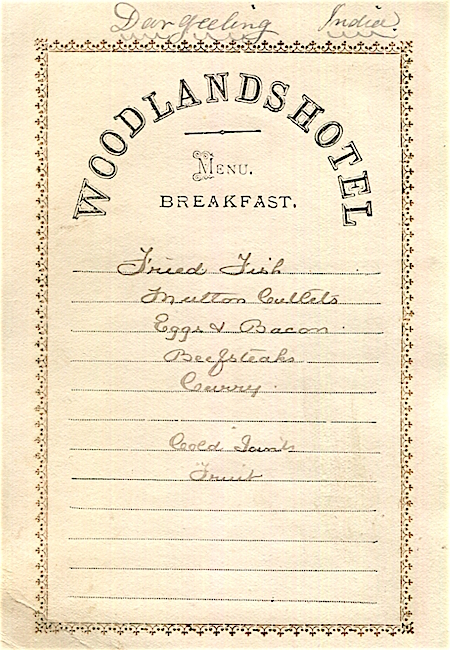 Dargeeling India.
WOODLANDS HOTEL
MENU.
BREAKFAST.
Fried Fish
Mutton Cutlets
Eggs & Bacon
Beefsteaks
Curry
Cold Joints
Fruit